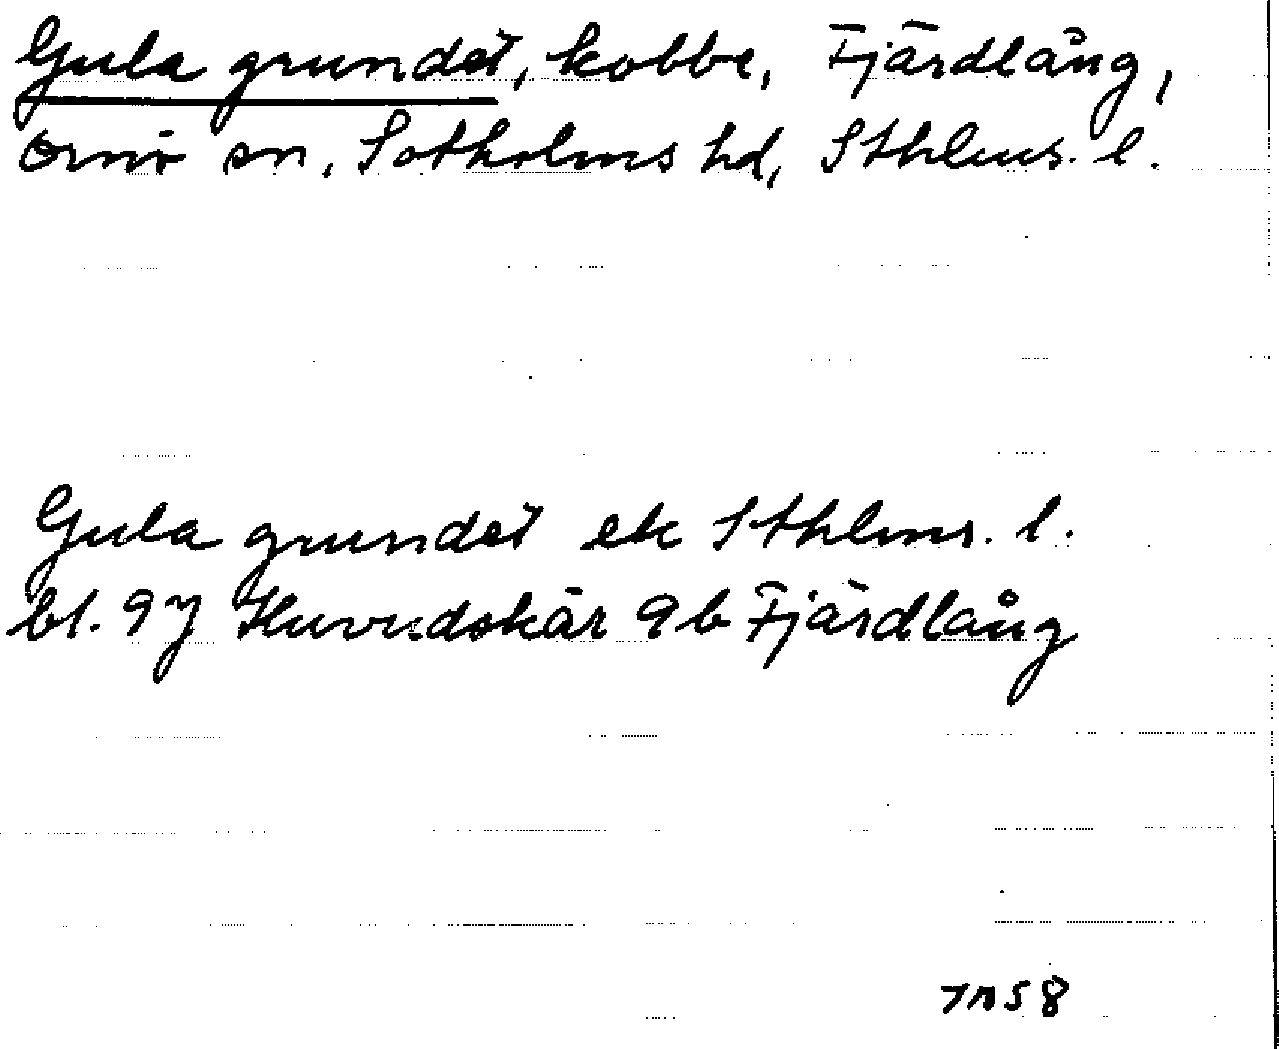 Gula grundet, kobbe, Fjärdlång,
Ornö sn, Sotholms hd, Sthlms. l.
Gula grundet ek Sthlms. l.
bl. 97 Huvudskär 9b Fjärdlång